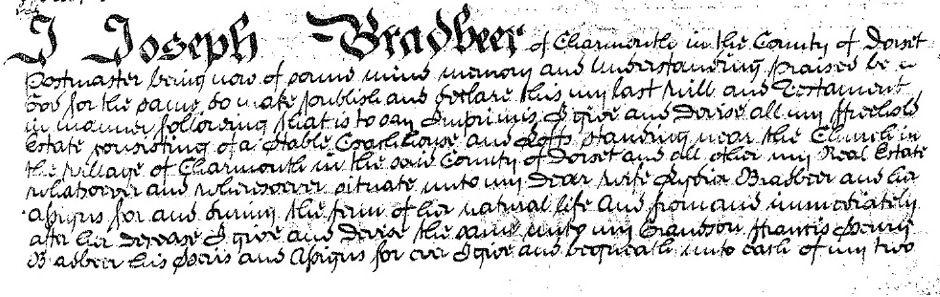 I Joseph Bradbeer of Charmouth in the County of Dorset
Postmaster being now of sound mind memory and Understanding praised be
God for the same do make publish and declare this my last Will and Testament
in manner following that is to say Imprimis I give and devise all my ffreehold
Estate consisting of a Stable Coachhouse and Lofts standing near the Church in
the Village of Charmouth in the said County of Dorset and all other my Real Estate
whatsoever and wheresoever situate unto my dear wife Bradbeer and her
assigns for and during the term of her natural life and from and immediately
after her decease I give and devise the same unto my Grandson ffrancis Henry
Bradbeer his Heirs and Assigns for ever I give and bequeath unto each of my two